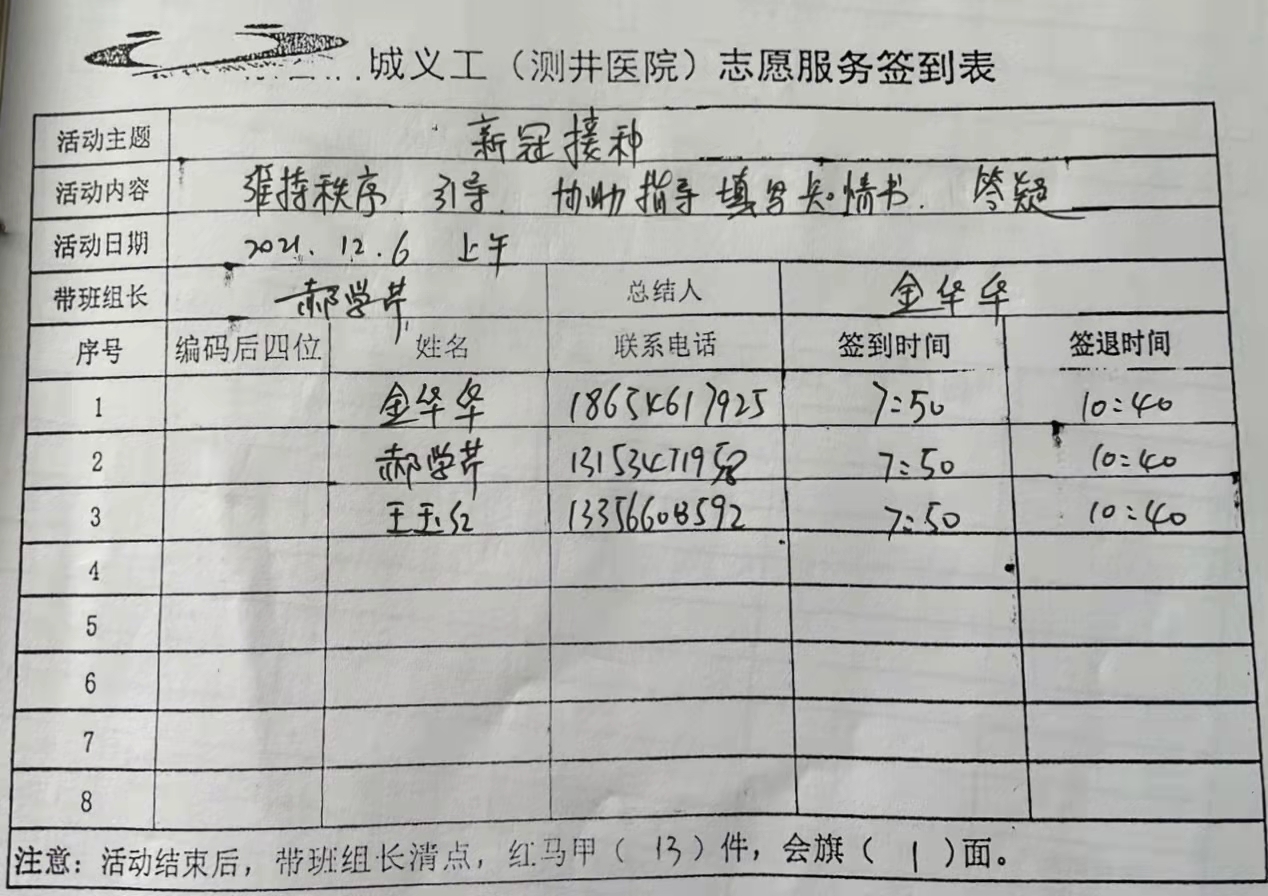 城义工（测井医院）志愿服务签到表
活动主题 新冠接种
活动内容 维持秩序. 引导. 协助指导填写知情书. 答疑
活动日期 2021.12.6 上午
带班组长 郝学芹 总结人 金华华
序号 编码后四位 姓名 联系电话 签到时间 签退时间
1 金华华 18654617925 7:50 10:40
2 郝学芹 7:50 10:40
3 王玉红 13356608592 7:50 10:40
4
5
6
7
8
注意：活动结束后，带班组长清点，红马甲（ 13 ）件，会旗（ 1 ）面。